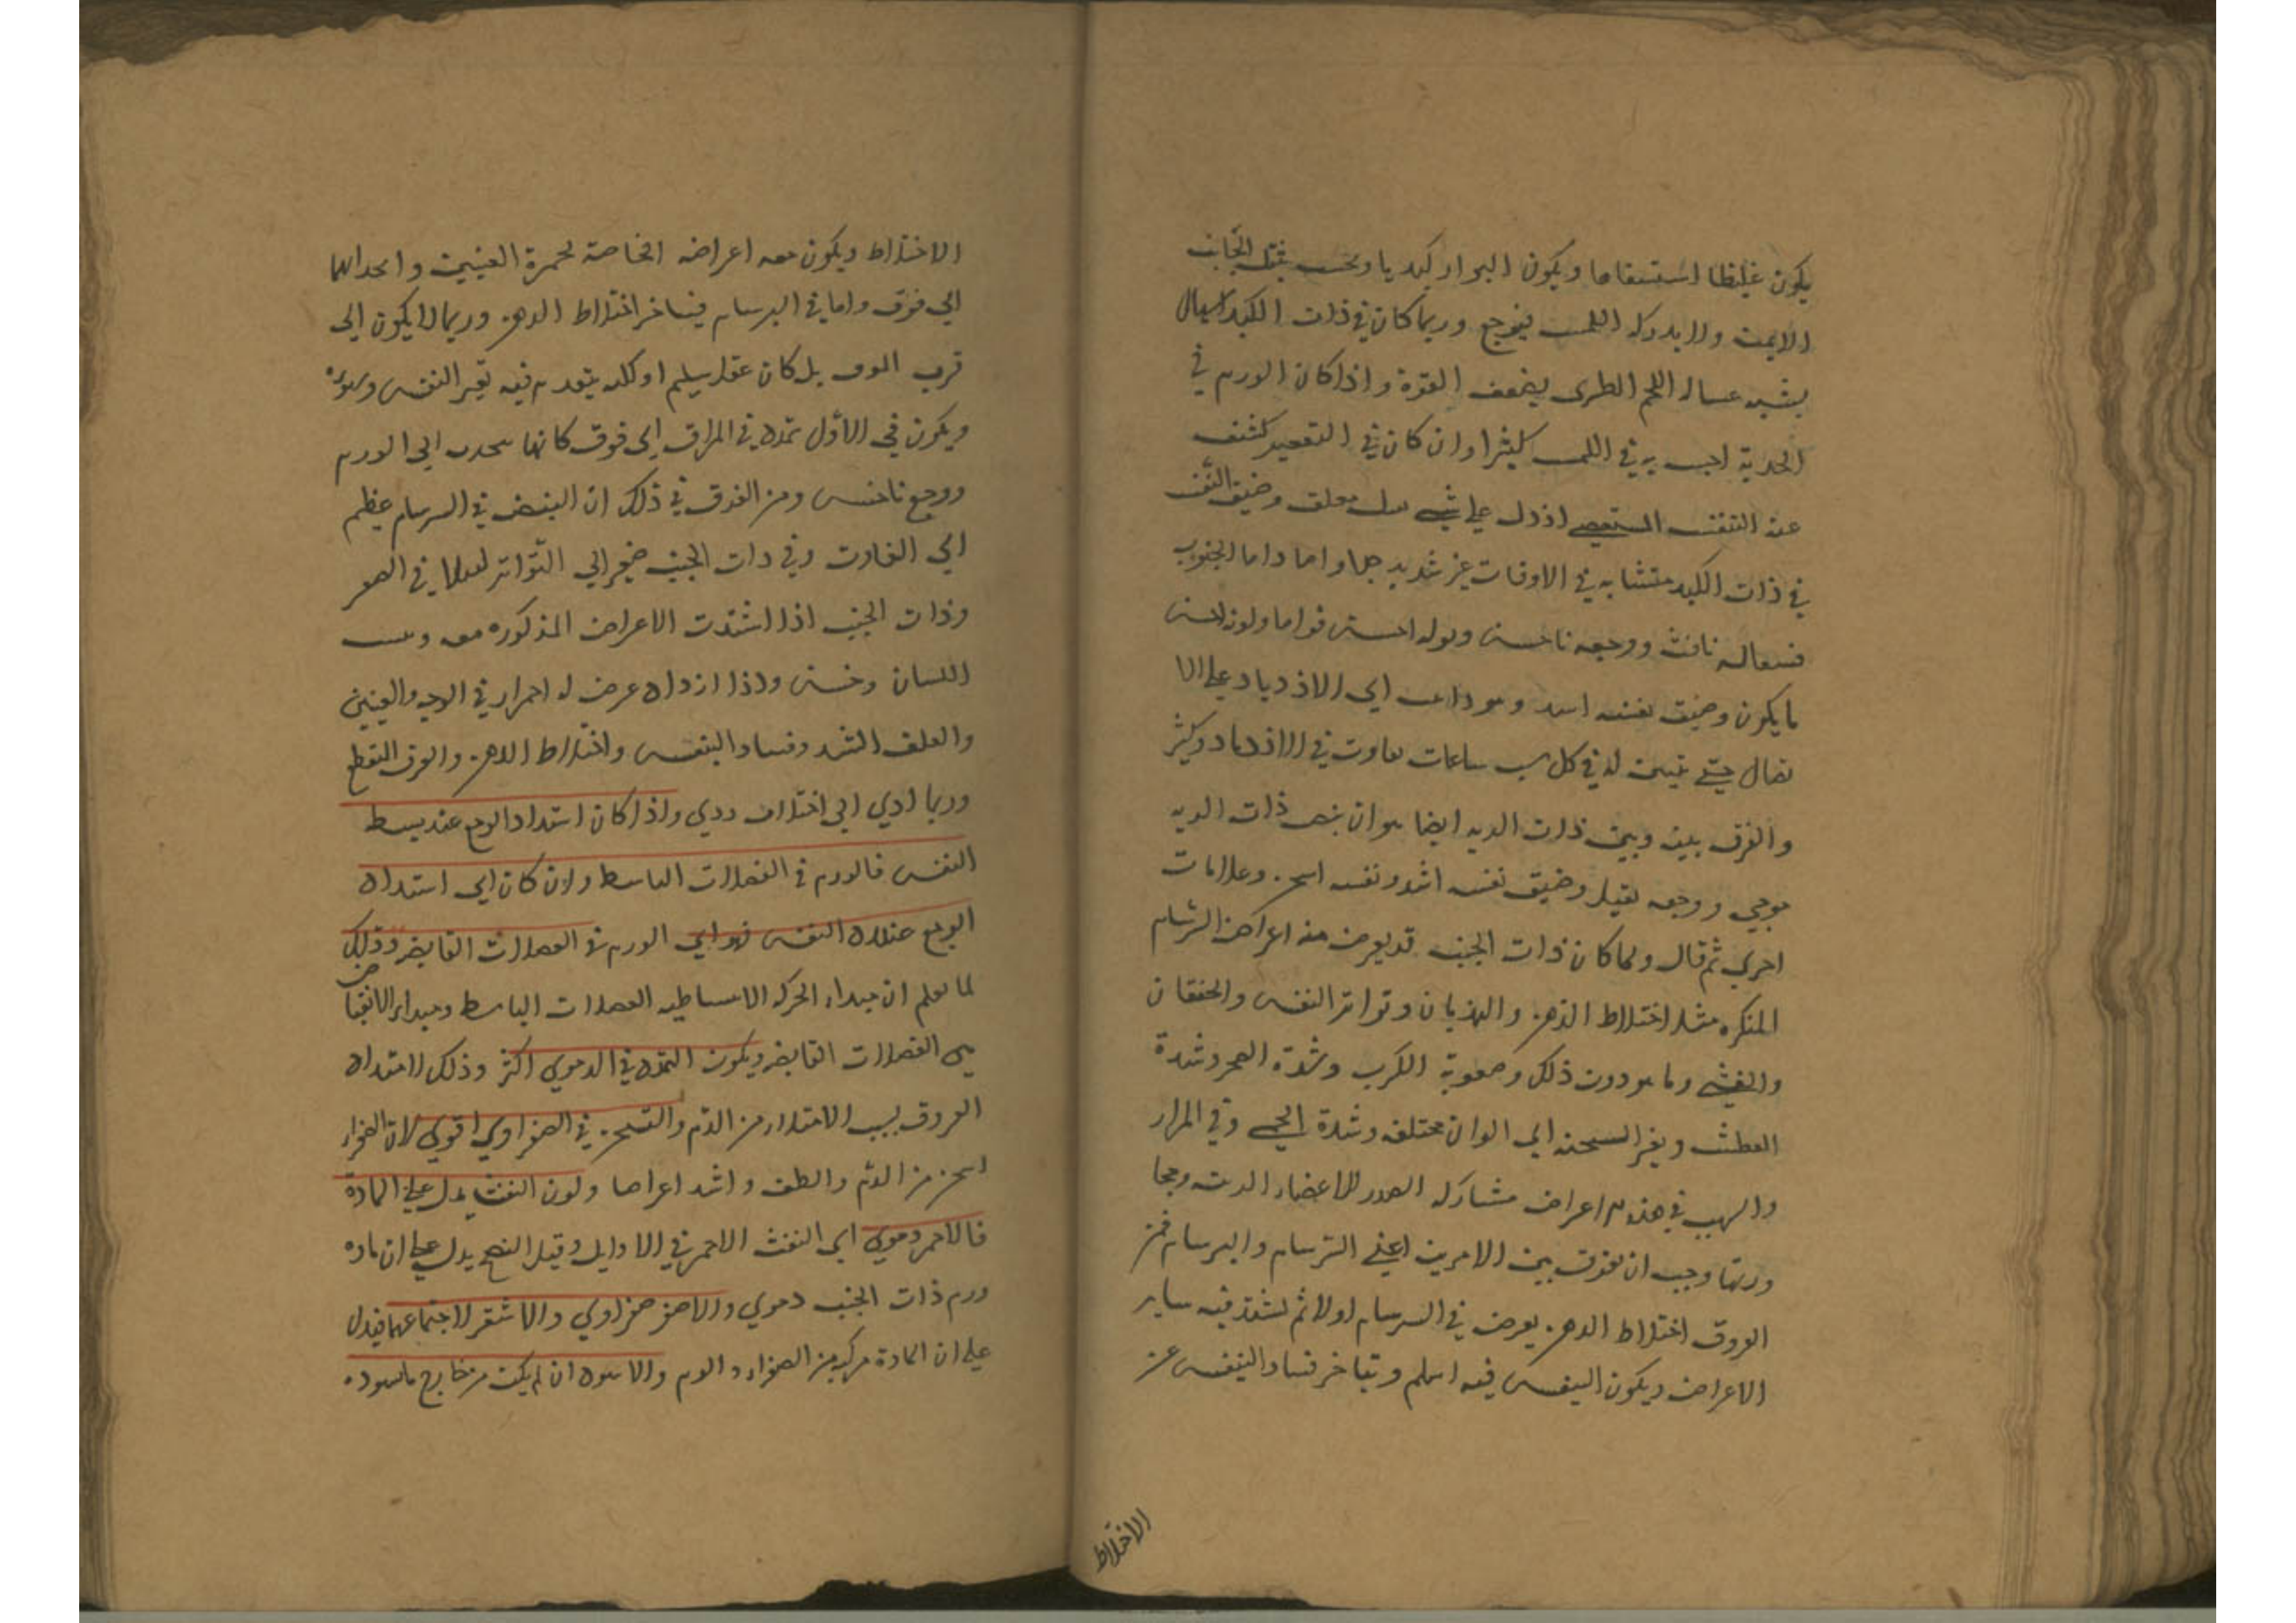 يكون غليظا استسقاما ويكون البراز كبديا ويحسب بثقل الجانب
الايمن ولا يدركه اللمس فيوجع وربما كان في ذات الكبد اسهال
يشبه غسالة اللحم الطرى يضعف القوة واذا كان الورم في
الحدبة احس به في اللمس كثيرا وان كان في التقعير كشف
عنه التنفس المستقصى اذ دل على شي معلق وضيق النفس
في ذات الكبد متشابه في الاوقات غير شديد جدا واما ذات الجنوب
فسعاله نافث ووجعه ناخس وبوله احسن قواما ولونه احسن
ما يكون وضيق نفسه اشد وهو ذاهب الى الازدياد على الا
تصال حتى يتبين له في كل ست ساعات تفاوت في الازدياد وكثير
والفرق بينه وبين ذات الريه ايضا هو ان نبض ذات الريه
موجي ووجعه ثقيل وضيق نفسه اشد ونفسه اسخن وعلامات
اخرى ثم قال ولما كان ذات الجنب قد يعرض منه اعراض السرسام
المنكره مثل اختلاط الذهن والهذيان وتواتر النفس والخفقان
والغشي وما هو دون ذلك وصعوبة الكرب وشدة الضجر وشدة
العطش وتغير السحنه الى الوان مختلفه وشدة الحمى وقي المرار
والسبب في هذه اعراض مشاركه الصدر للاعضاء الرئيسه ومجا
ورتها وجب ان نفرق بين الامرين اعني السرسام والبرسام فمن
الفروق اختلاط الذهن يعرض في السرسام اولا ثم تشتد فيه ساير
الاعراض ويكون التنفس فيه اسلم ويتاخر فساد التنفس عن
الاختلاط
الاختلاط ويكون معه اعراضه الخاصة لحمرة العينين وانجذابهما
الى فوق واما في البرسام فيتاخر اختلاط الذهن وربما لا يكون الى
قرب الموت بل كان عقل سليم او كله يتقدم فيه تغير النفس وسوءه
ويكون في الاول تمدد في المراق الى فوق كانها تنجذب الى الورم
ووجع ناخس ومن الفرق في ذلك ان النبض في السرسام عظيم
الى التفاوت وفي ذات الجنب صغير الى التواتر
وذات الجنب اذا اشتدت الاعراض المذكوره معه ويبس
اللسان وخشن واذا ازداد عرض له احمرار في الوجه والعينين
والقلق الشد وفساد النفس واختلاط الذهن والعرق المنقطع
وربما ادي الى اختلاف ردي واذا كان اشتداد الوجع عند بسط
النفس فالورم في العضلات الباسطه وان كان الى اشتداد
الوجع عند النفس فهو اي الورم في العضلات القابضه وذلك
لما تعلم ان مبداء الحركه الانبساطيه العضلات الباسطه ومبداء الانقبا
ض
هي العضلات القابضه ويكون التمدد في الدموي اكثر وذلك لامتداد
العروق بسبب الامتداد من الدم والتسخن في الصفراوي اقوى لان الصفراء
اسخن من الدم والطف واشد اعراضا ولون النفث يدل على المادة
فالاحمر دموي اي النفث الاحمر في الاوايل وقبل النضج يدل على ان ماده
ورم ذات الجنب دموي والاصفر صفراوي والاشقر لاجتماعهما فيدل
على ان المادة مركبه من الصفراء والدم والاسود ان لم يكن من خارج ما سوده